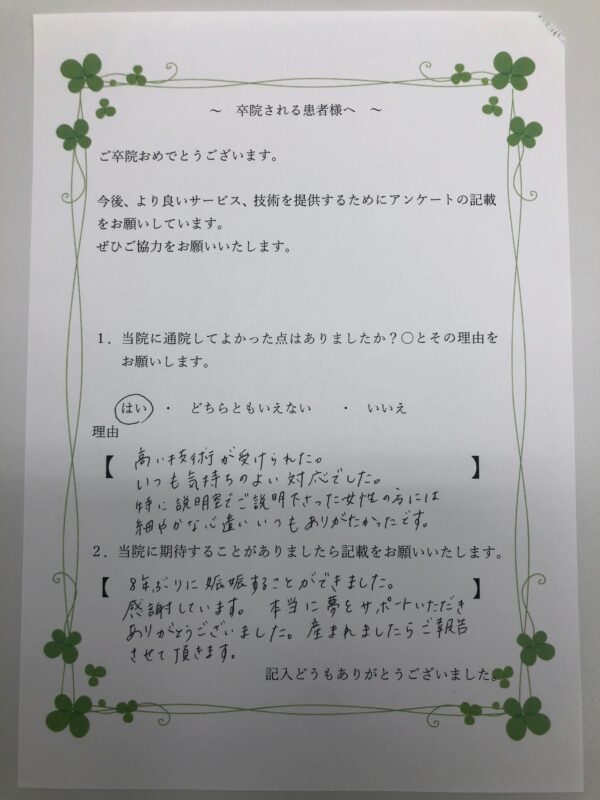 ～　卒院される患者様へ　～
ご卒院おめでとうございます。
今後、より良いサービス、技術を提供するためにアンケートの記載
をお願いしています。
ぜひご協力をお願いいたします。
１．当院に通院してよかった点はありましたか？〇とその理由を
お願いします。
はい　・　どちらともいえない　・　いいえ
理由
【 高い技術が受けられた。 】
いつも気持ちのよい対応でした。
特に説明室でご説明下さった女性の方には
細やかな心遣いいつもありがたかったです。
２．当院に期待することがありましたら記載をお願いいたします。
【 8年ぶりに妊娠することができました。 】
感謝しています。 本当に夢をサポートいただき
ありがとうございました。産まれましたらご報告
させて頂きます。
記入どうもありがとうございました。